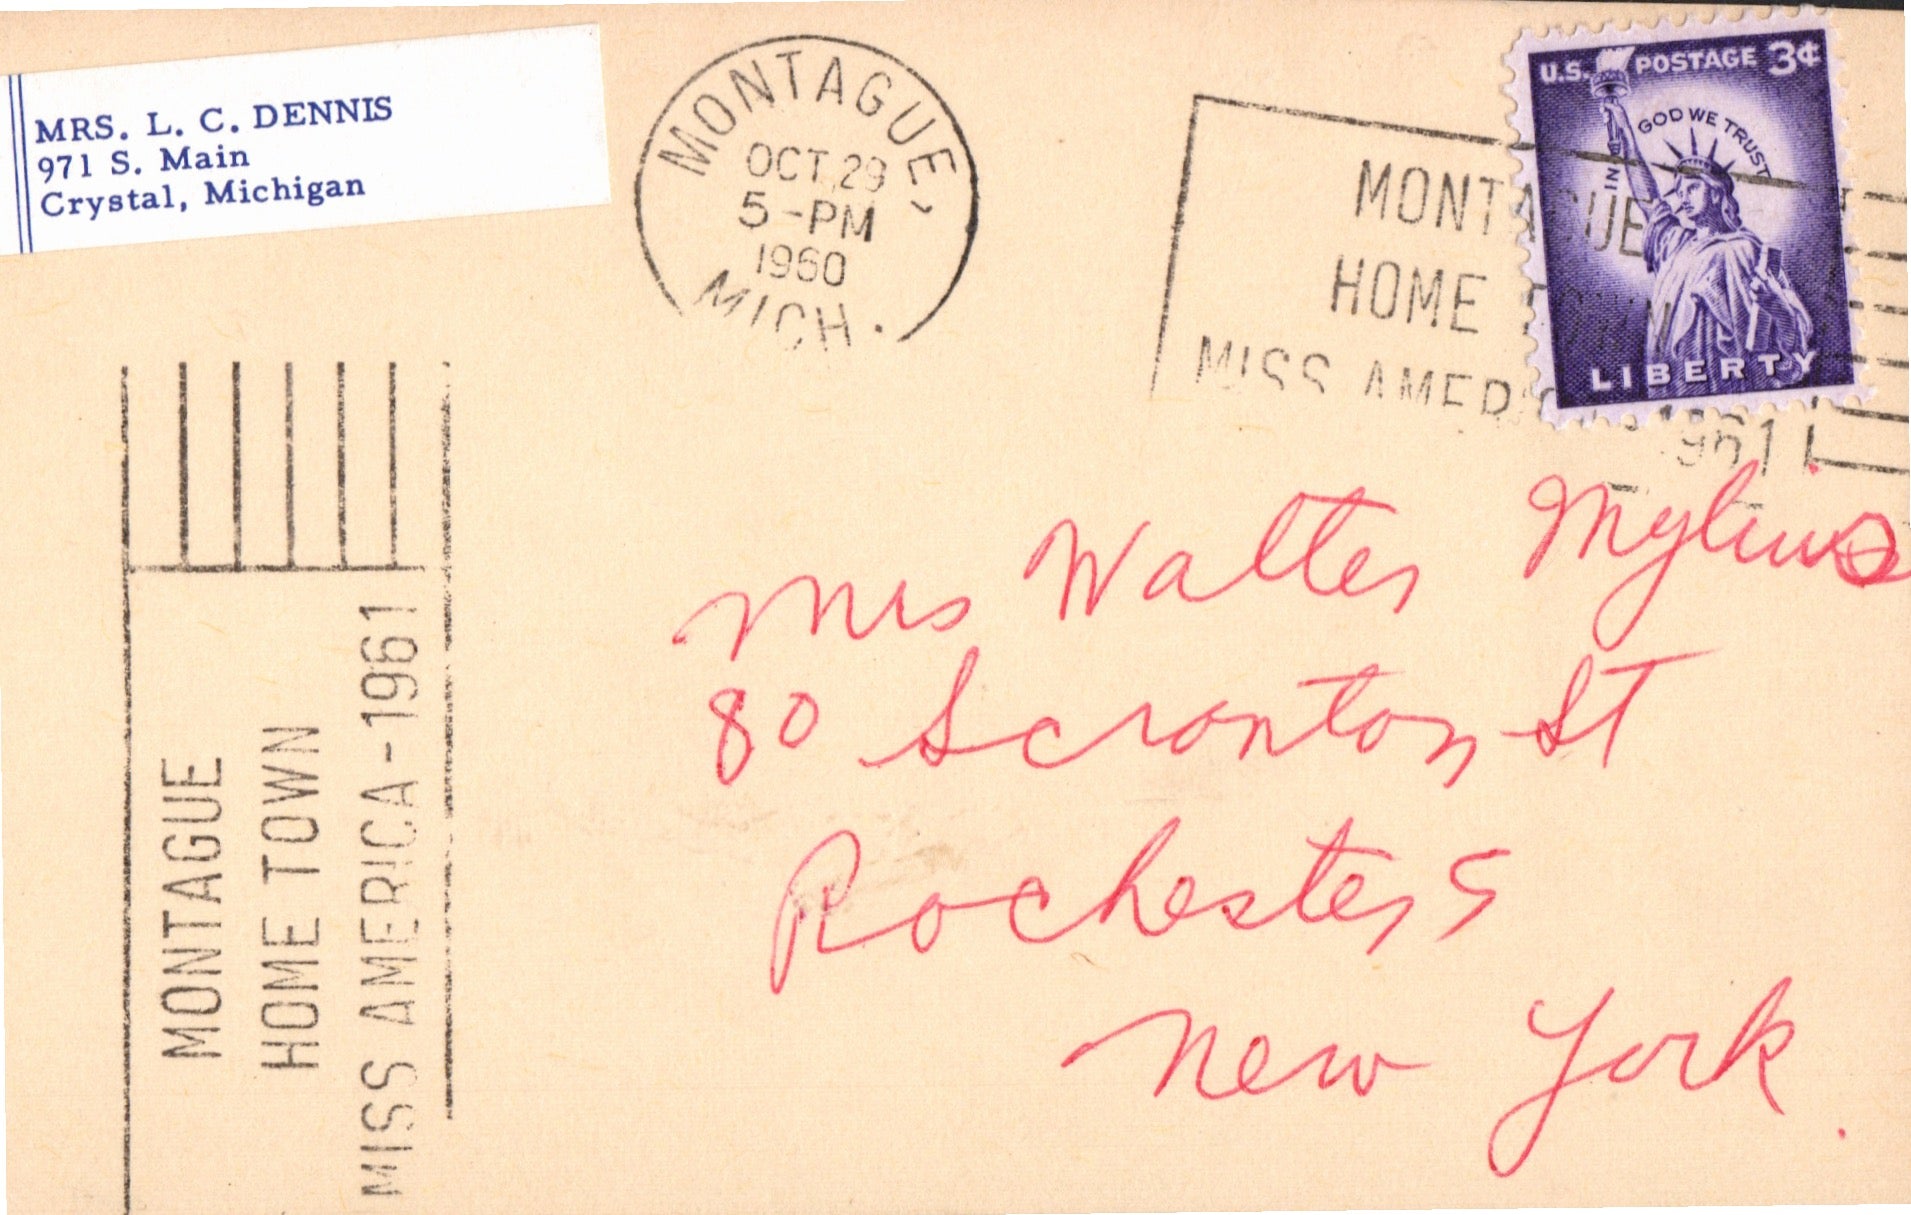 MRS. L. C. DENNIS
971 S. Main
Crystal, Michigan
MONTAGUE,
OCT 29
5-PM
1960
MICH.
MONTAGUE
HOME TOWN
MISS AMERICA-1961
U.S. POSTAGE 3¢
IN GOD WE TRUST
LIBERTY
Mrs Walter Mylius
80 Scranton St
Rochester 5
New York
MONTAGUE
HOME TOWN
MISS AMERICA-1961